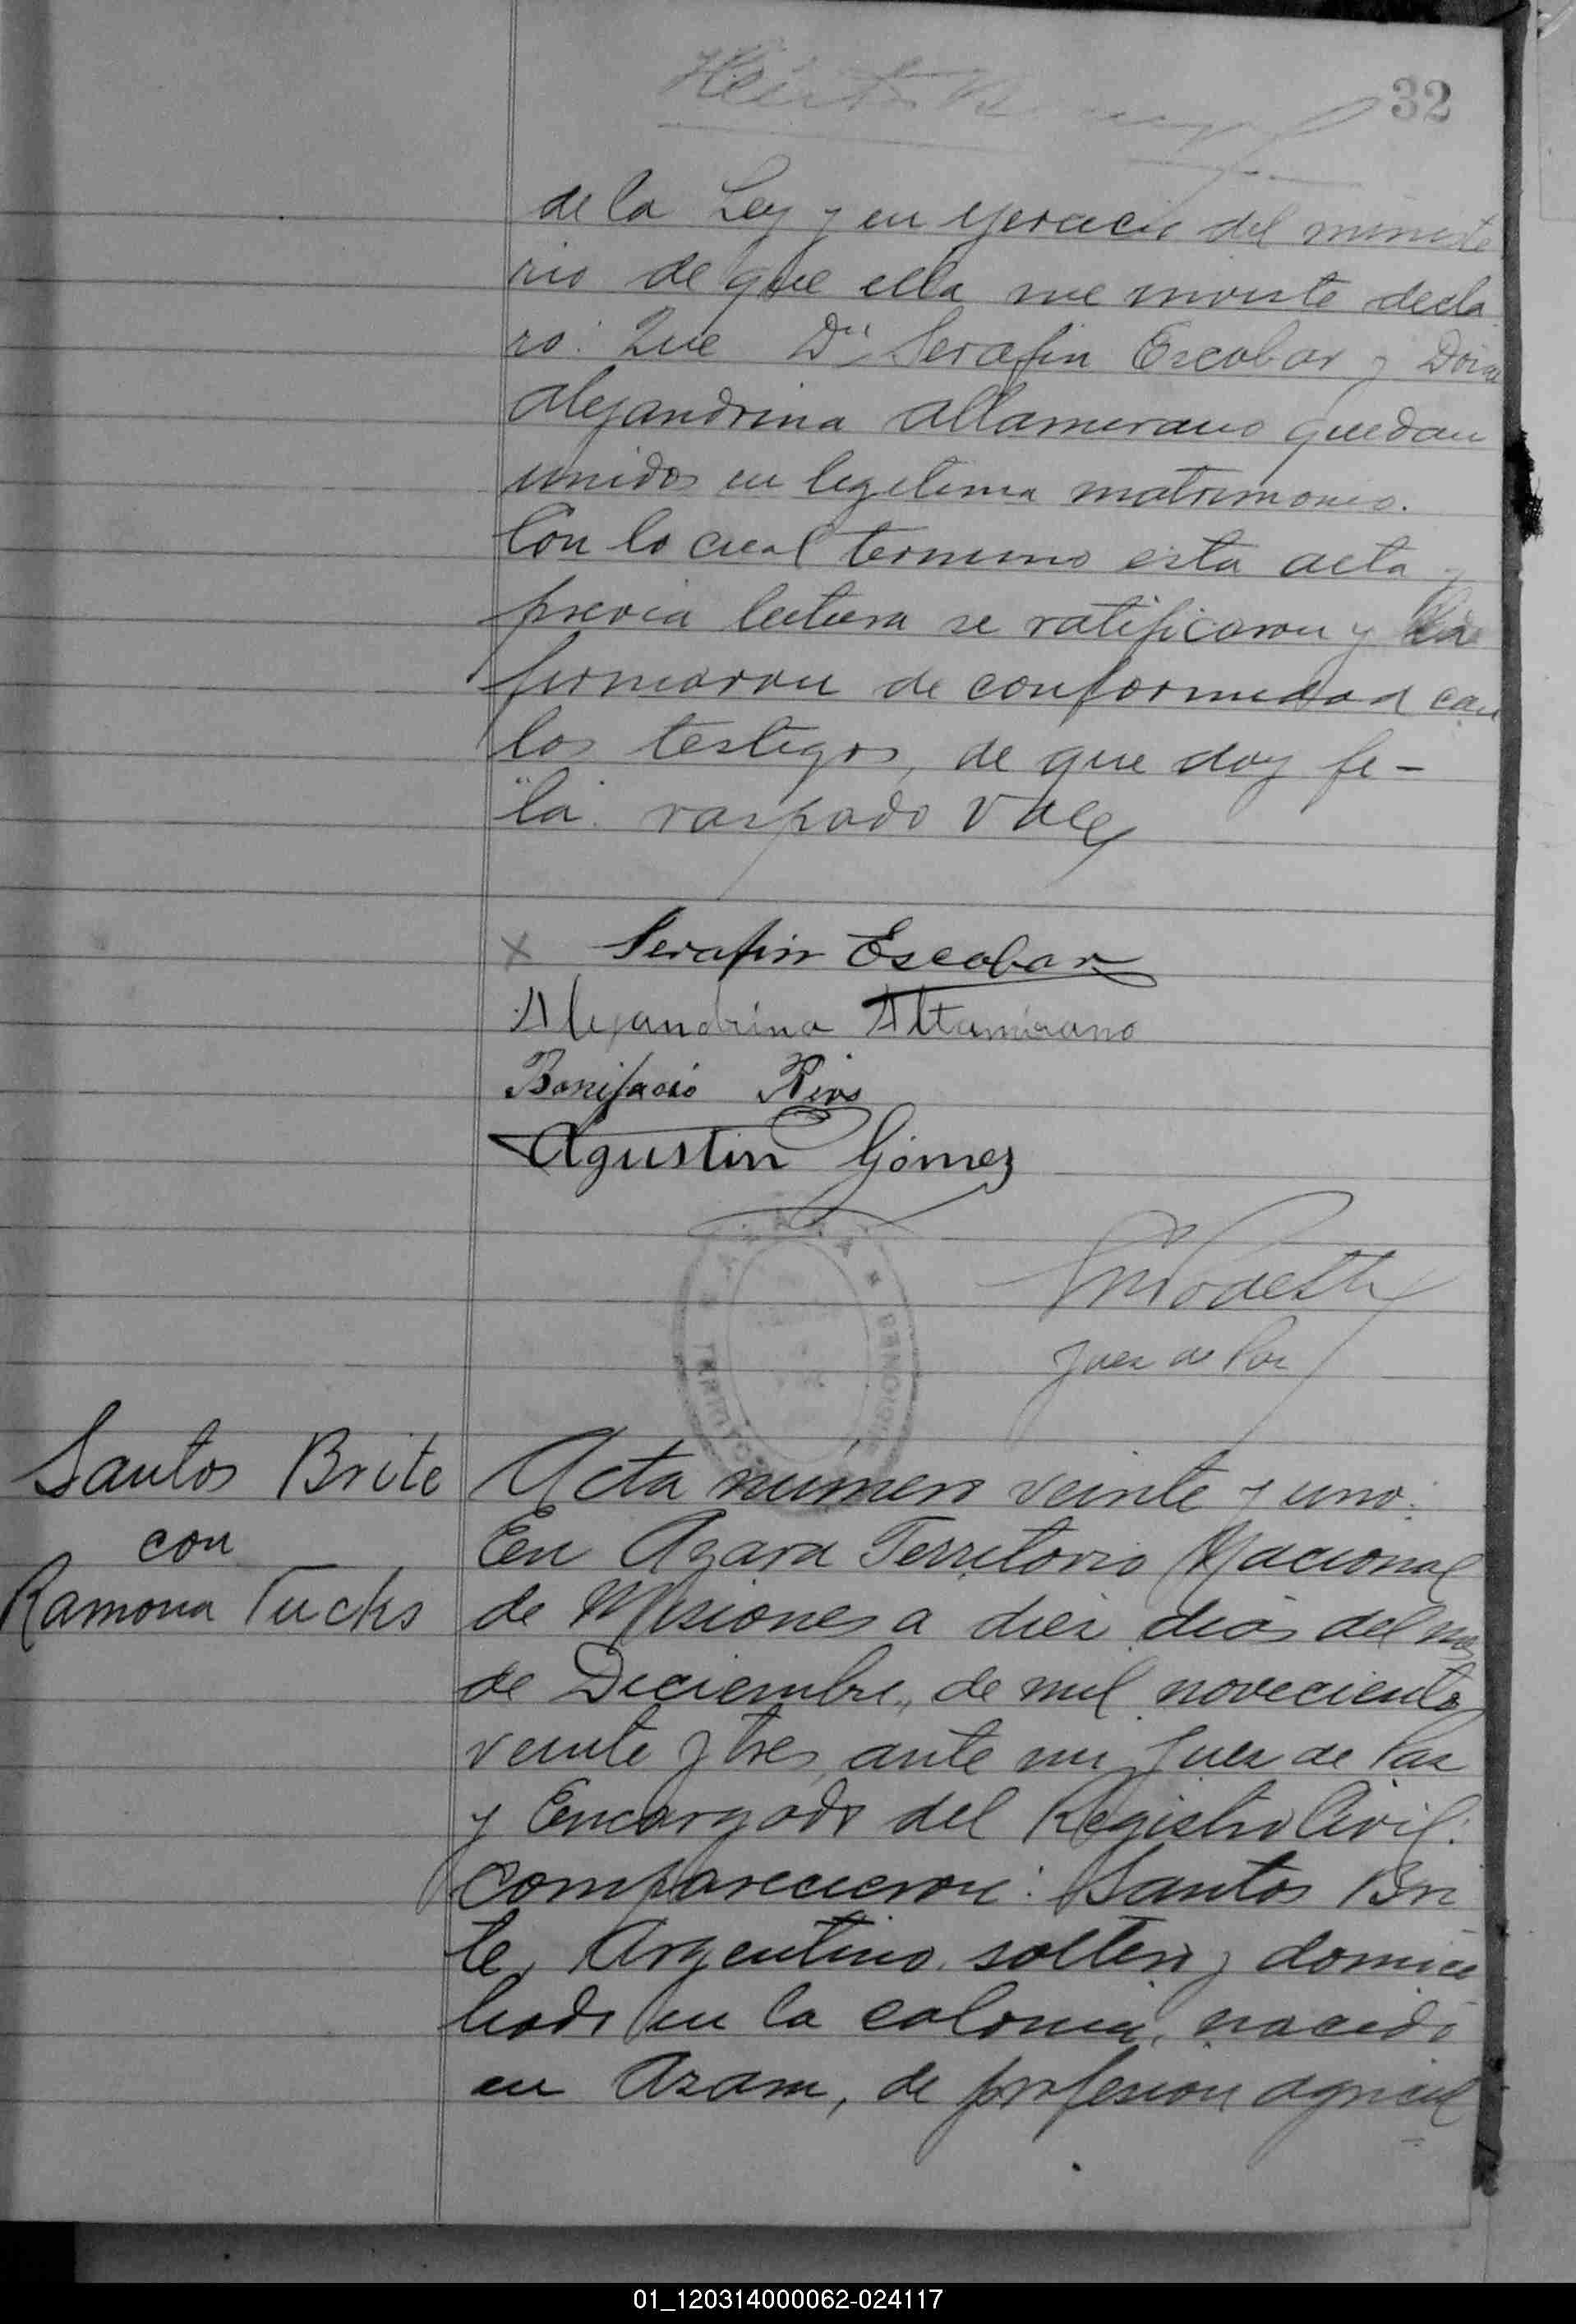 32
de la Ley y en ejercicio del ministe
rio de que ella me inviste decla
ro: Que Dn Serafin Escobar y Doña
Alejandrina Altamirano quedan
unidos en legitima matrimonio.
Con lo cual termino esta acta y
previa lectura se ratificaron y la
firmaron de conformidad con
los testigos, de que doy fe-
"la" raspado Vale
x Serafin Escobar
Alejandrina Altamirano
Bonifacio Rios
Agustin Gómez
Juez de Paz
MISIONES
TERRITO
Santos Brite
con
Ramona Tucks
Acta número veinte y uno:
En Azara Territorio Nacional
de Misiones a diez dias del mes
de Diciembre, de mil novecientos
veinte y tres, ante mi Juez de Paz
y Encargado del Registro Civil:
comparecieron: Santos Bri
te, Argentino, soltero y domici
liado en la colonia, nacido
en Azara, de profesion agricul
01_120314000062-024117